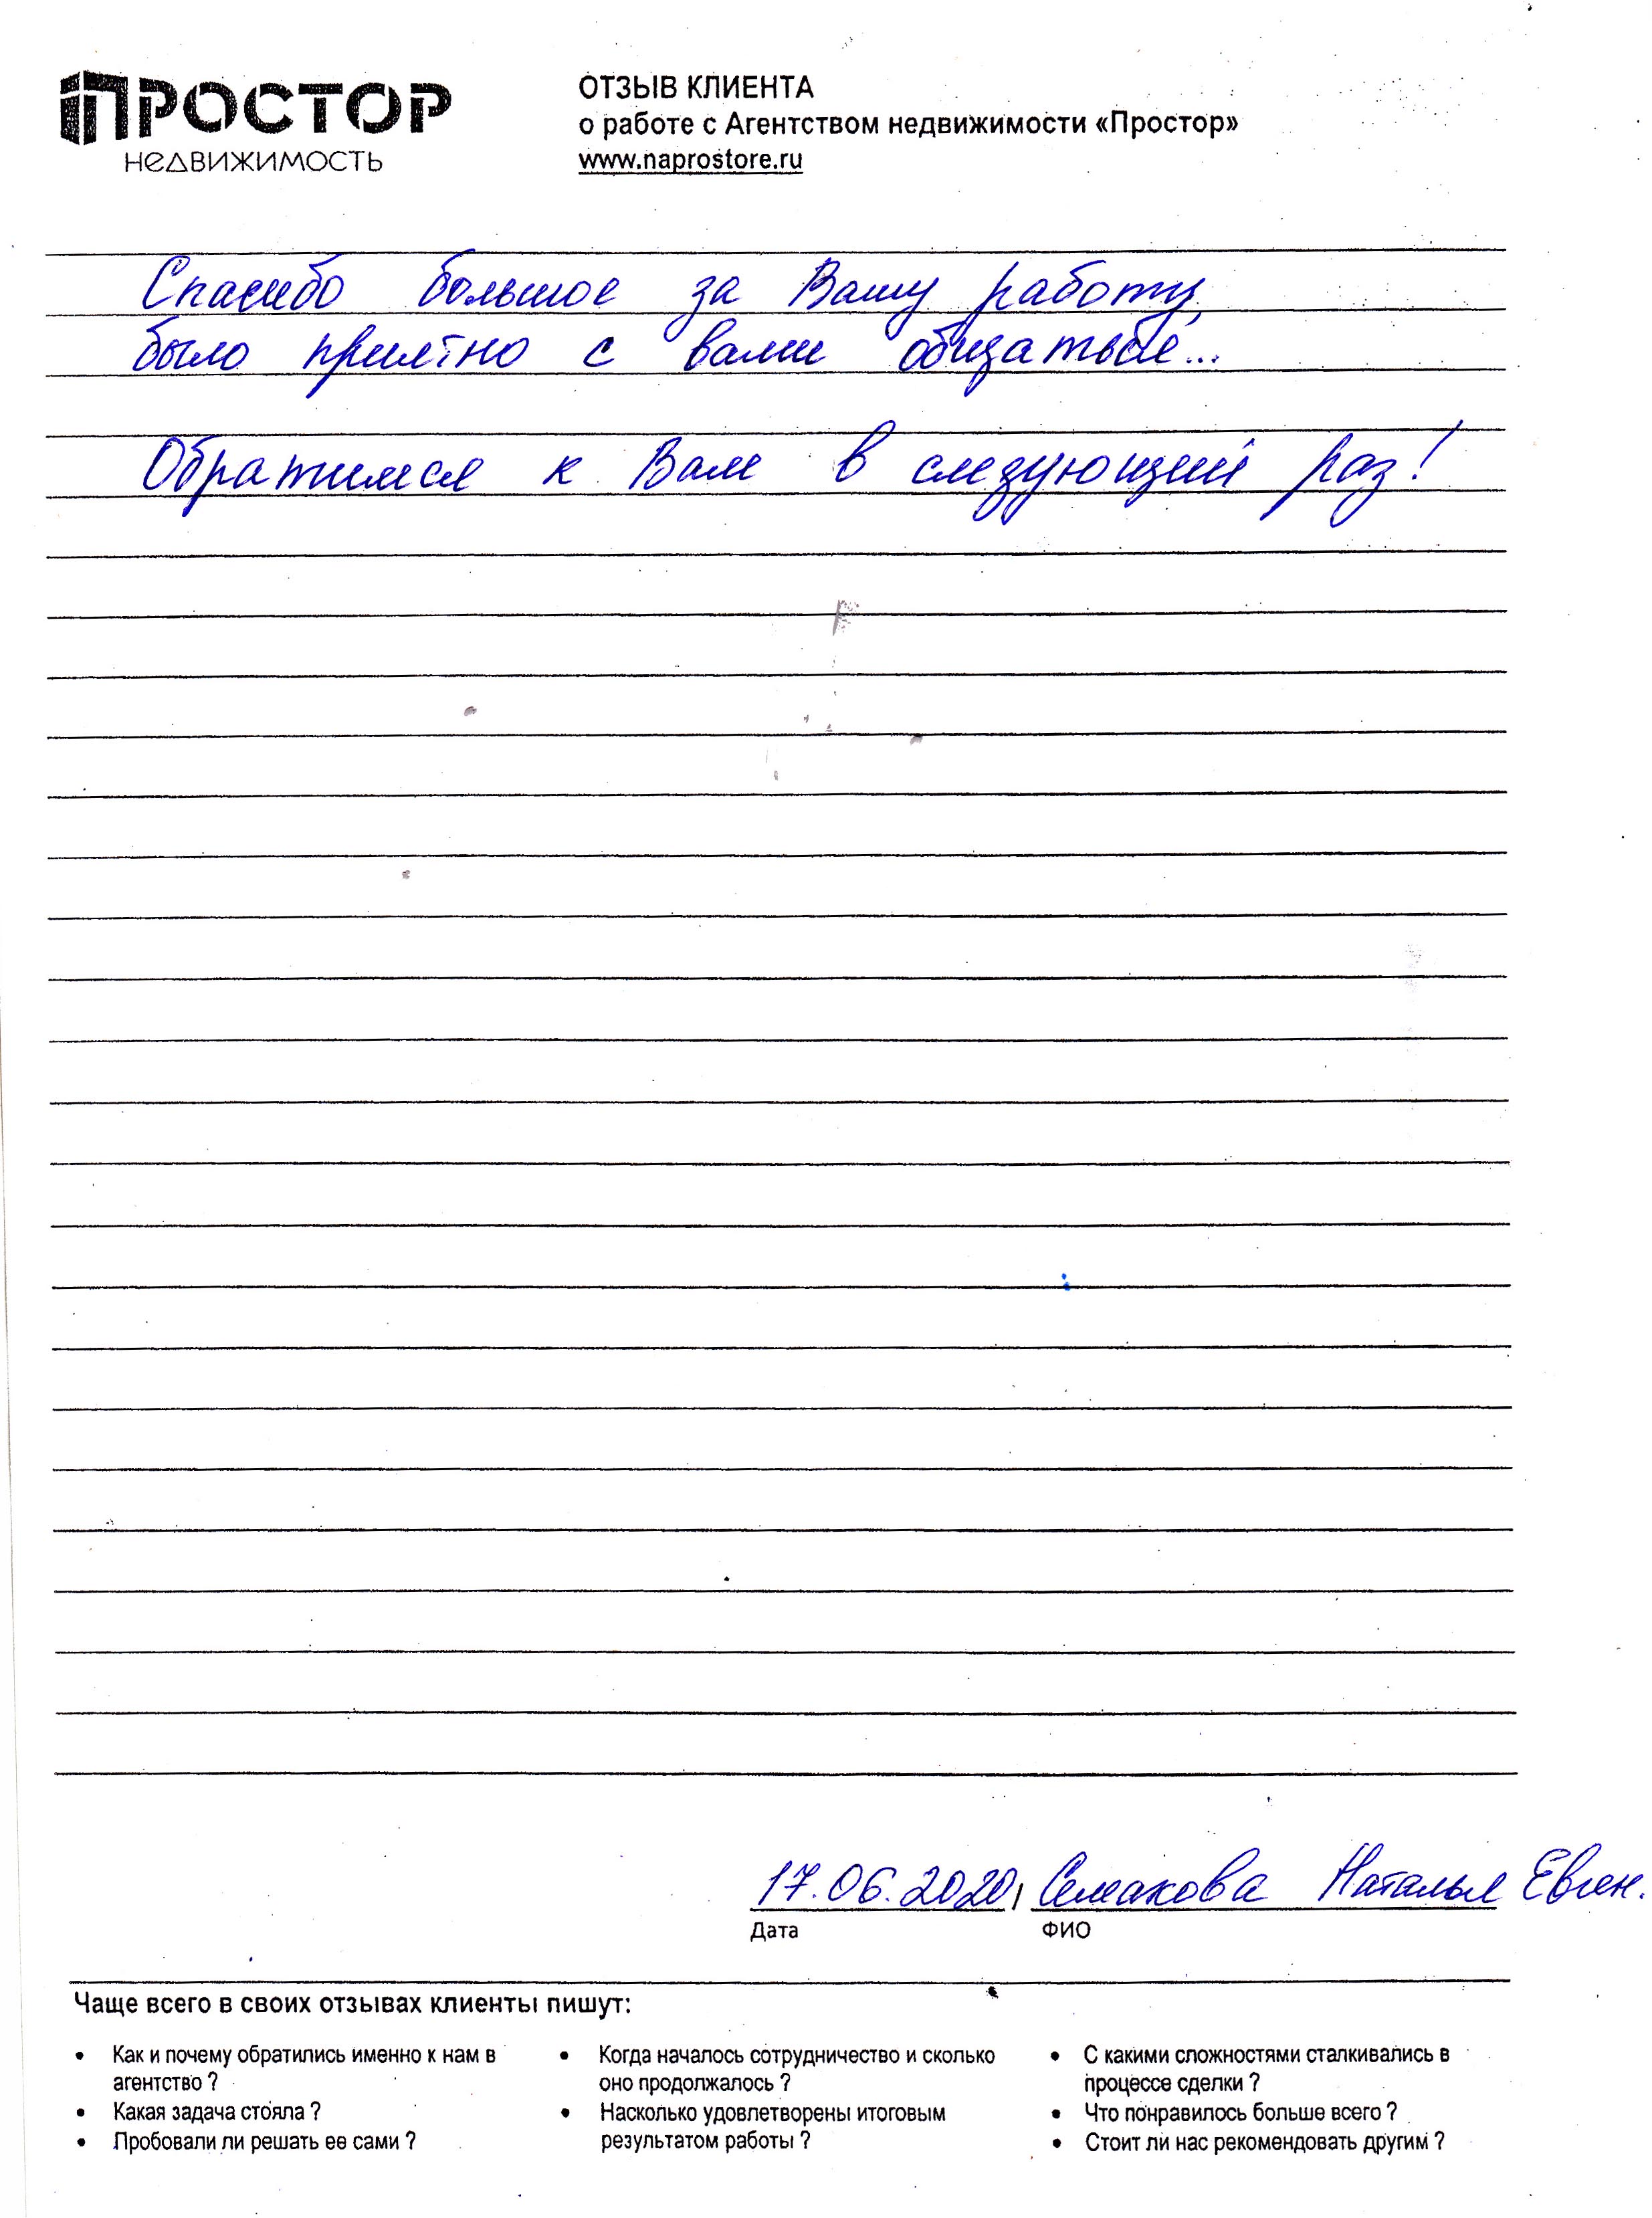 ПРОСТОР
НЕДВИЖИМОСТЬ
ОТЗЫВ КЛИЕНТА
о работе с Агентством недвижимости «Простор»
www.naprostore.ru
Спасибо большое за Вашу работу,
было приятно с вами общаться...
Обратимся к Вам в следующий раз!
17.06.2020, Семакова Наталья Евген.
Дата ФИО
Чаще всего в своих отзывах клиенты пишут:
• Как и почему обратились именно к нам в
агентство ?
• Какая задача стояла ?
• Пробовали ли решать ее сами ?
• Когда началось сотрудничество и сколько
оно продолжалось ?
• Насколько удовлетворены итоговым
результатом работы ?
• С какими сложностями сталкивались в
процессе сделки ?
• Что понравилось больше всего ?
• Стоит ли нас рекомендовать другим ?